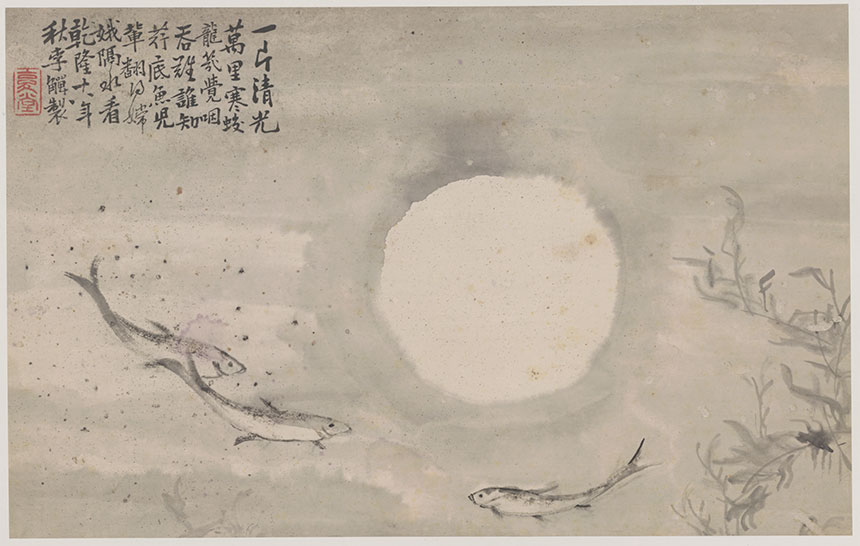 一片清光
萬里寒蛟
龍覺咽
吞難誰知
荇底魚兒
輩翻得嫦
娥隔水看
乾隆十年
秋李鱓製
堂